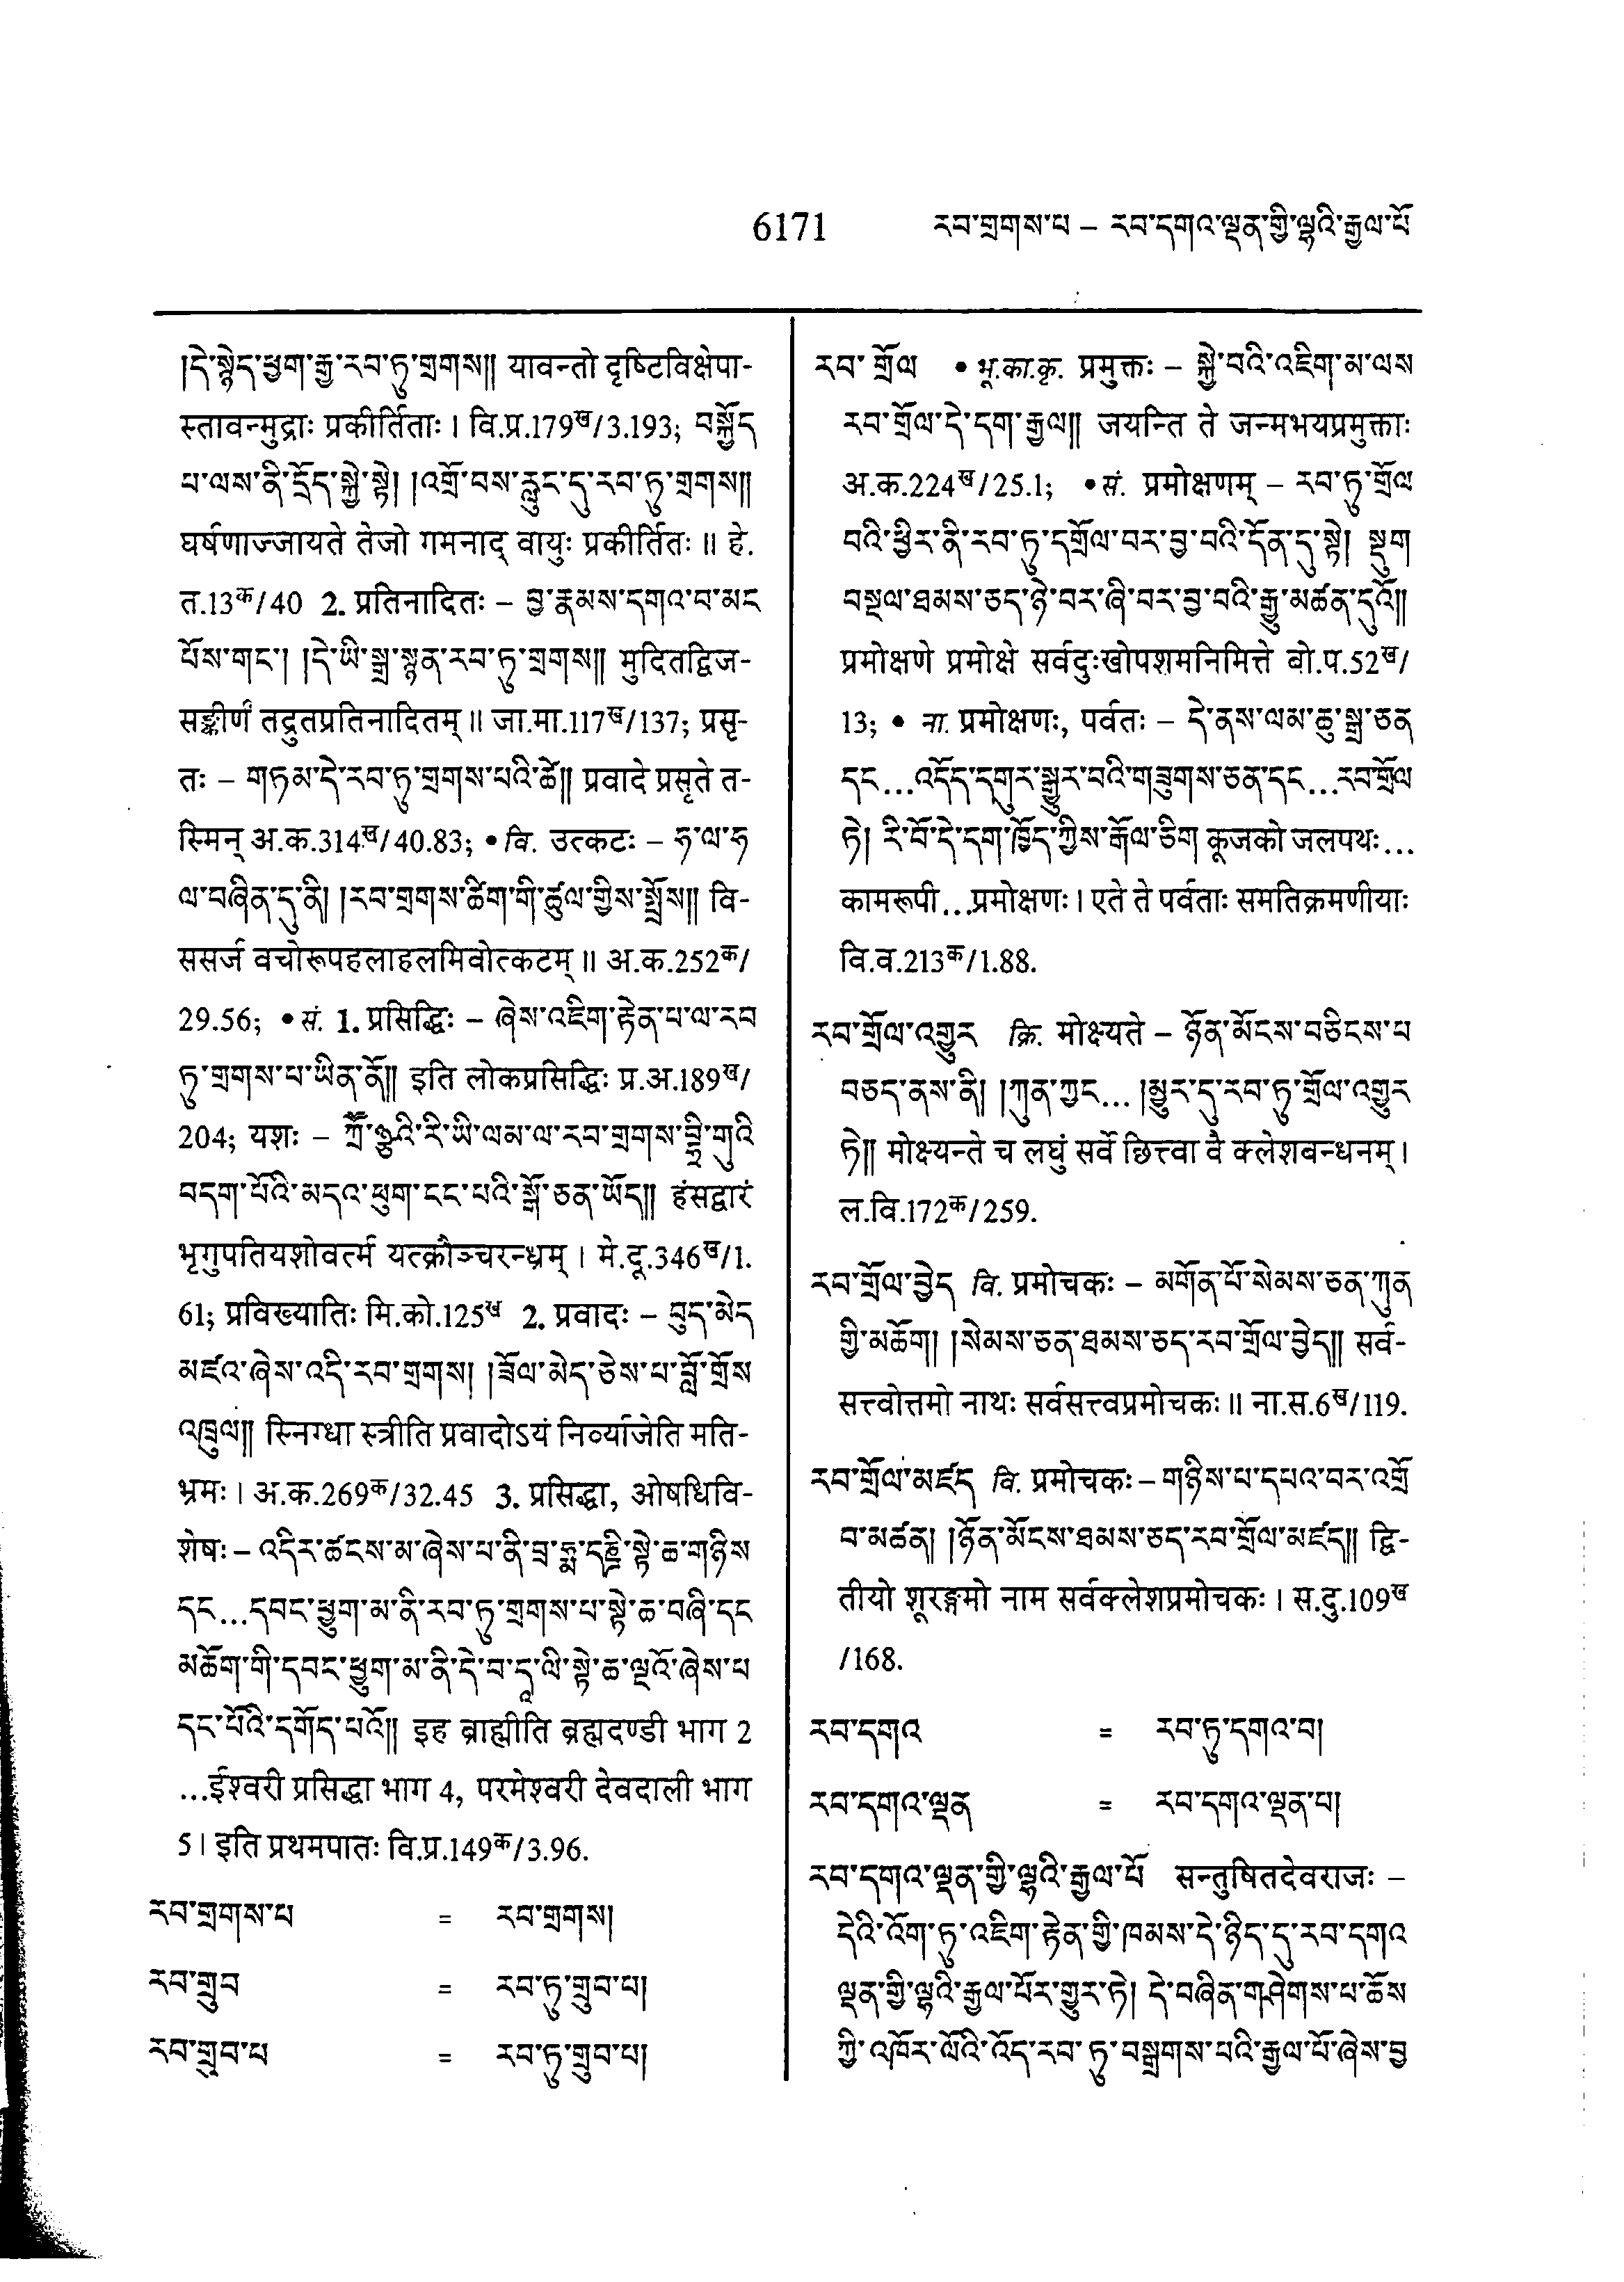 6171 རབ་གྲགས་པ – རབ་དགའ་ལྡན་གྱི་ལྷའི་རྒྱལ་པོ
།དེ་སྙེད་ཕྱག་རྒྱ་རབ་ཏུ་གྲགས༎ यावन्तो दृष्टिविक्षेपा-
स्तावन्मुद्राः प्रकीर्तिताः । वि.प्र.179ख/3.193; བསྐྱོད
པ་ལས་ནི་དྲོད་སྐྱེ་སྟེ། །འགྲོ་བས་རླུང་དུ་རབ་ཏུ་གྲགས༎
घर्षणाज्जायते तेजो गमनाद् वायुः प्रकीर्तितः ॥ हे.
त.13क/40 2. प्रतिनादितः – བྱ་རྣམས་དགའ་བ་མང
པོས་གང་། །དེ་ཡི་སྒྲ་སྙན་རབ་ཏུ་གྲགས༎ मुदितद्विज-
सङ्कीर्णं तद्रुतप्रतिनादितम् ॥ जा.मा.117ख/137; प्रसृ-
तः – གཏམ་དེ་རབ་ཏུ་གྲགས་པའི་ཚེ༎ प्रवादे प्रसृते त-
स्मिन् अ.क.314ख/40.83; • वि. उत्कटः – ཧ་ལ་ཧ
ལ་བཞིན་དུ་ནི། །རབ་གྲགས་ཚིག་གི་ཚུལ་གྱིས་སྤྲོས༎ वि-
ससर्ज वचोरूपहलाहलमिवोत्कटम् ॥ अ.क.252क/
29.56; • सं. 1. प्रसिद्धिः – ཞེས་འཇིག་རྟེན་པ་ལ་རབ
ཏུ་གྲགས་པ་ཡིན་ནོ༎ इति लोकप्रसिद्धिः प्र.अ.189ख/
204; यशः – ཀྲོ་ཉྩའི་རི་ཡི་ལམ་ལ་རབ་གྲགས་བྷྲི་གུའི
བདག་པོའི་མདའ་ཕུག་ངང་པའི་སྒོ་ཅན་ཡོད༎ हंसद्वारं
भृगुपतियशोवर्त्म यत्क्रौञ्चरन्ध्रम् । मे.दू.346ख/1.
61; प्रविख्यातिः मि.को.125ख 2. प्रवादः – བུད་མེད
མཛའ་ཞེས་འདི་རབ་གྲགས། །ཟོལ་མེད་ཅེས་པ་བློ་གྲོས
འཁྲུལ༎ स्निग्धा स्त्रीति प्रवादोऽयं निर्व्याजेति मति-
भ्रमः । अ.क.269क/32.45 3. प्रसिद्धा, ओषधिवि-
शेषः – འདིར་ཚངས་མ་ཞེས་པ་ནི་བྲ་ཧྨ་དཎྜི་སྟེ་ཆ་གཉིས
དང...དབང་ཕྱུག་མ་ནི་རབ་ཏུ་གྲགས་པ་སྟེ་ཆ་བཞི་དང
མཆོག་གི་དབང་ཕྱུག་མ་ནི་དེ་བ་དཱ་ལི་སྟེ་ཆ་ལྔའོ་ཞེས་པ
དང་པོའི་དགོད་པའོ༎ इह ब्राह्मीति ब्रह्मदण्डी भाग 2
...ईश्वरी प्रसिद्धा भाग 4, परमेश्वरी देवदाली भाग
5 । इति प्रथमपातः वि.प्र.149क/3.96.
རབ་གྲགས་པ = རབ་གྲགས།
རབ་གྲུབ = རབ་ཏུ་གྲུབ་པ།
རབ་གྲུབ་པ = རབ་ཏུ་གྲུབ་པ།
རབ་ གྲོལ • भू.का.कृ. प्रमुक्तः – སྐྱེ་བའི་འཇིག་མ་ལས
རབ་གྲོལ་དེ་དག་རྒྱལ༎ जयन्ति ते जन्मभयप्रमुक्ताः
अ.क.224ख/25.1; • सं. प्रमोक्षणम् – རབ་ཏུ་གྲོལ
བའི་ཕྱིར་ནི་རབ་ཏུ་དགྲོལ་བར་བྱ་བའི་དོན་དུ་སྟེ། སྡུག
བསྔལ་ཐམས་ཅད་ཉེ་བར་ཞི་བར་བྱ་བའི་རྒྱུ་མཚན་དུའོ༎
प्रमोक्षणे प्रमोक्षे सर्वदुःखोपशमनिमित्ते बो.प.52ख/
13; • ना. प्रमोक्षणः, पर्वतः – དེ་ནས་ལམ་ཆུ་སྒྲ་ཅན
དང...འདོད་དགུར་སྒྱུར་བའི་གཟུགས་ཅན་དང...རབ་གྲོལ
ཏེ། རི་བོ་དེ་དག་ཁྱོད་ཀྱིས་རྒོལ་ཅིག कूजको जलपथः...
कामरूपी...प्रमोक्षणः । एते ते पर्वताः समतिक्रमणीयाः
वि.व.213क/1.88.
རབ་གྲོལ་འགྱུར क्रि. मोक्ष्यते – ཉོན་མོངས་བཅིངས་པ
བཅད་ནས་ནི། །ཀུན་ཀྱང... །མྱུར་དུ་རབ་ཏུ་གྲོལ་འགྱུར
ཏེ༎ मोक्ष्यन्ते च लघुं सर्वे छित्त्वा वै क्लेशबन्धनम् ।
ल.वि.172क/259.
རབ་གྲོལ་བྱེད वि. प्रमोचकः – མགོན་པོ་སེམས་ཅན་ཀུན
གྱི་མཆོག། །སེམས་ཅན་ཐམས་ཅད་རབ་གྲོལ་བྱེད༎ सर्व-
सत्त्वोत्तमो नाथः सर्वसत्त्वप्रमोचकः ॥ ना.स.6ख/119.
རབ་གྲོལ་མཛད वि. प्रमोचकः – གཉིས་པ་དཔའ་བར་འགྲོ
བ་མཚན། །ཉོན་མོངས་ཐམས་ཅད་རབ་གྲོལ་མཛད༎ द्वि-
तीयो शूरङ्गमो नाम सर्वक्लेशप्रमोचकः । स.दु.109ख
/168.
རབ་དགའ = རབ་ཏུ་དགའ་བ།
རབ་དགའ་ལྡན = རབ་དགའ་ལྡན་པ།
རབ་དགའ་ལྡན་གྱི་ལྷའི་རྒྱལ་པོ सन्तुषितदेवराजः –
དེའི་འོག་ཏུ་འཇིག་རྟེན་གྱི་ཁམས་དེ་ཉིད་དུ་རབ་དགའ
ལྡན་གྱི་ལྷའི་རྒྱལ་པོར་གྱུར་ཏེ། དེ་བཞིན་གཤེགས་པ་ཆོས
ཀྱི་འཁོར་ལོའི་འོད་རབ་ ཏུ་བསྒྲགས་པའི་རྒྱལ་པོ་ཞེས་བྱ